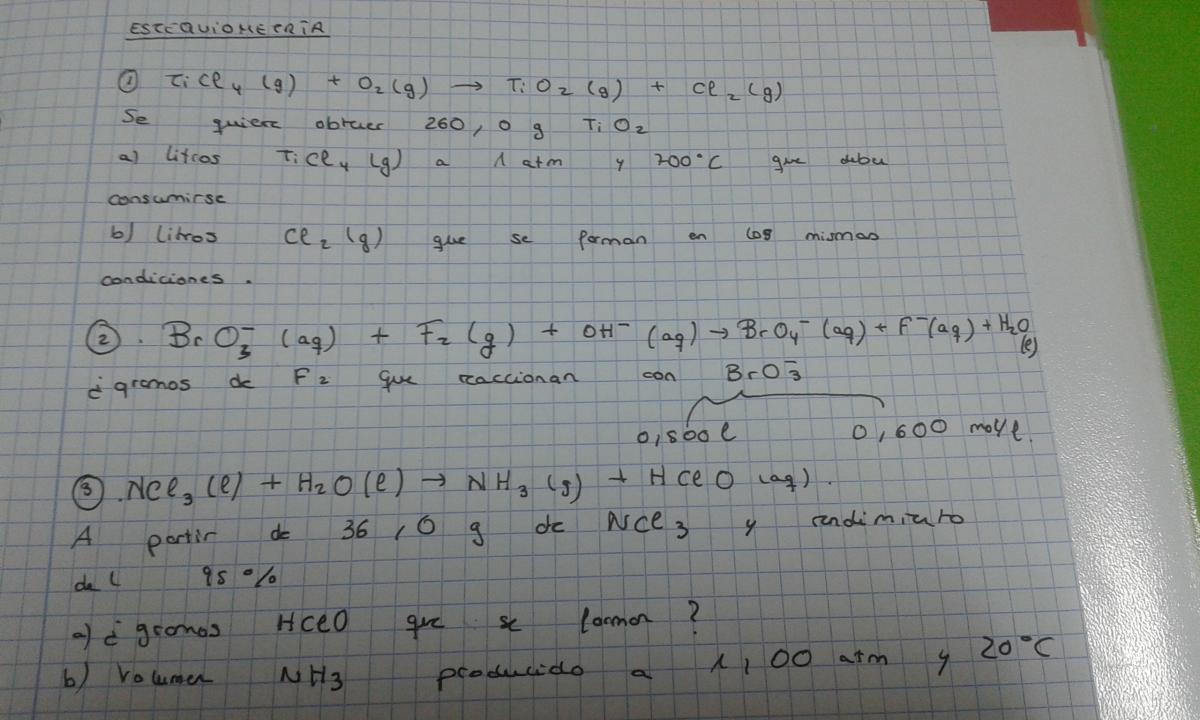 ESTEQUIOMETRÍA
① TiCl₄ (g) + O₂ (g) → TiO₂ (g) + Cl₂ (g)
Se quiere obtener 260,0 g TiO₂
a) litros TiCl₄ (g) a 1 atm y 700°C que deben
consumirse
b) Litros Cl₂ (g) que se forman en las mismas
condiciones.
②. BrO₃⁻ (aq) + F₂ (g) + OH⁻ (aq) → BrO₄⁻ (aq) + F⁻(aq) + H₂O (l)
¿gramos de F₂ que reaccionan con BrO₃⁻
0,500 l 0,600 mol/l.
③. NCl₃ (l) + H₂O (l) → NH₃ (g) + HClO (aq).
A partir de 36,0 g de NCl₃ y rendimiento
del 95 %
a) ¿gramos HClO que se forman?
b) Volumen NH₃ producido a 1,00 atm y 20°C